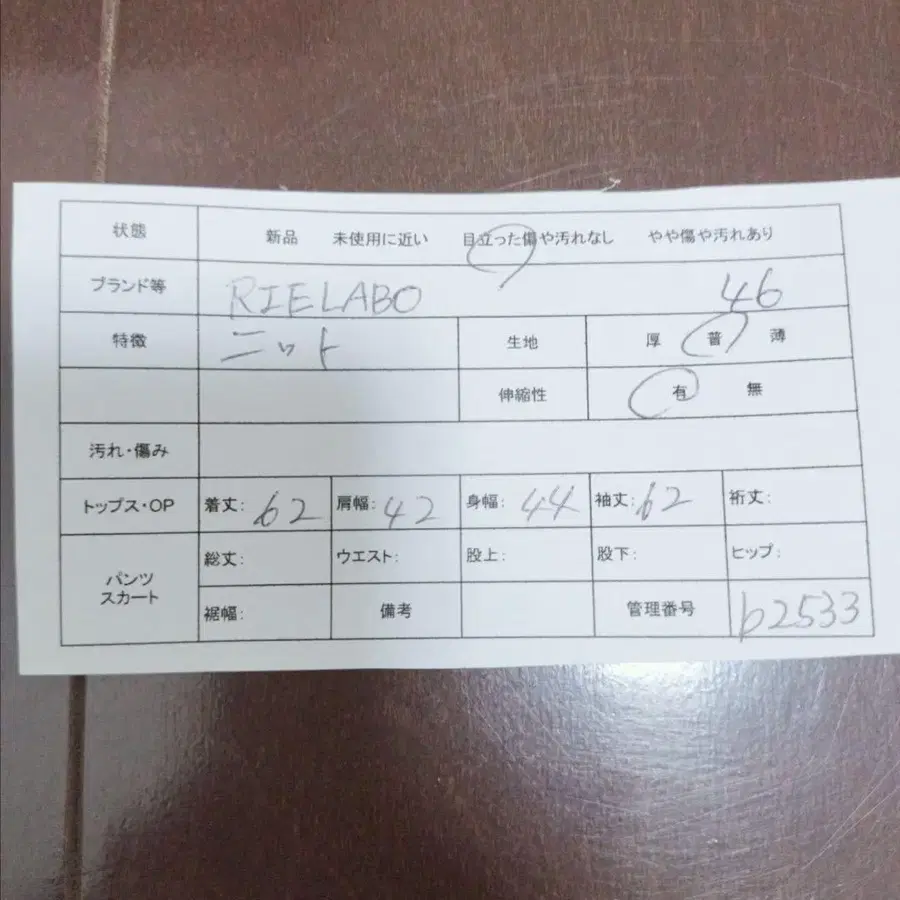 状態 新品 未使用に近い 目立った傷や汚れなし やや傷や汚れあり
ブランド等 RIELABO 46
特徴 ニット 生地 厚 普 薄
伸縮性 有 無
汚れ・傷み
トップス・OP 着丈: 62 肩幅: 42 身幅: 44 袖丈: 62 裄丈:
パンツ スカート 総丈: ウエスト: 股上: 股下: ヒップ:
裾幅: 備考 管理番号 b2533